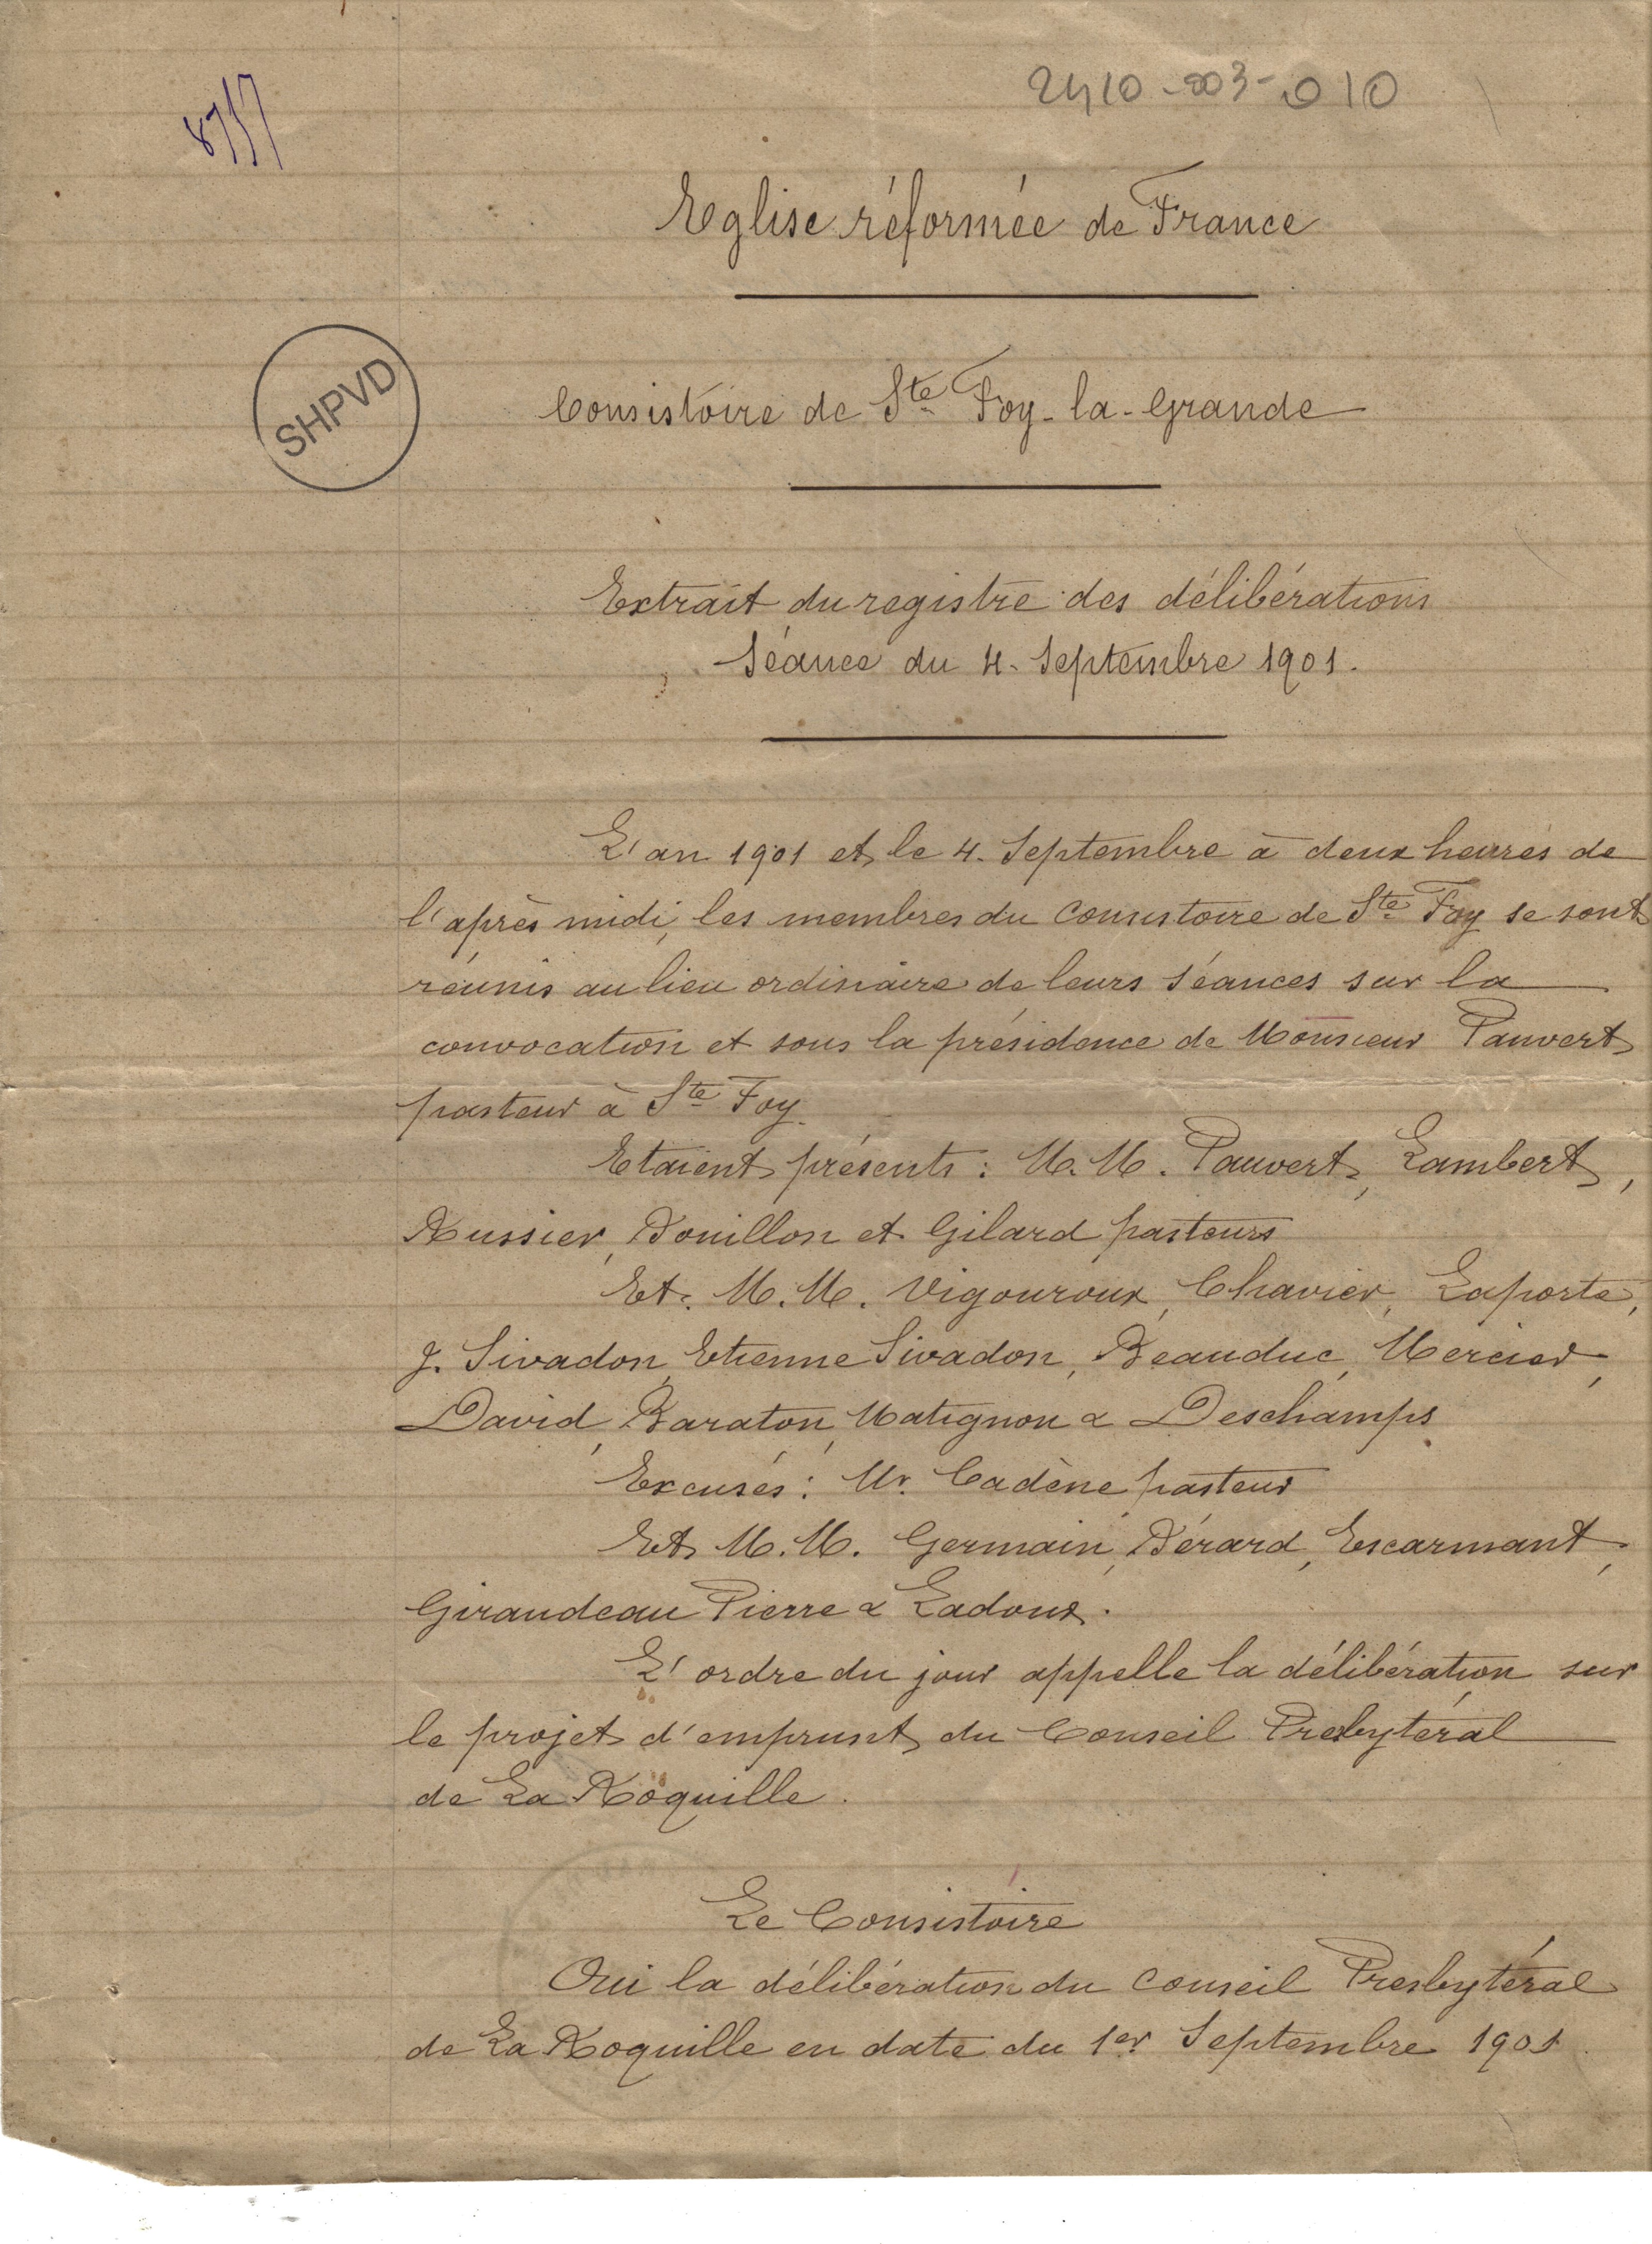 2410-003-010
8757
SHPVD
Eglise réformée de France
Consistoire de Ste Foy-la-Grande
Extrait du registre des délibérations
Séance du 4. Septembre 1901.
L'an 1901 et le 4. Septembre à deux heures de
l'après midi, les membres du Consistoire de Ste Foy se sont
réunis au lieu ordinaire de leurs séances sur la
convocation et sous la présidence de Monsieur Pauvert
pasteur à Ste Foy.
Etaient présents : M.M. Pauvert, Lambert,
Russier, Bouillon et Gilard pasteurs
Et. M.M. Vigouroux, Chavier, Laporte,
J. Sivadon, Etienne Sivadon, Beauduc, Mercier,
David, Baraton, Matignon & Deschamps
Excusés : Mr. Cadène pasteur
Et M.M. Germain, Bérard, Escarmant,
Giraudeau Pierre & Ladoux.
L'ordre du jour appelle la délibération sur
le projet d'emprunt du Conseil Presbytéral
de La Roquille.
Le Consistoire
Oui la délibération du Conseil Presbytéral
de La Roquille en date du 1er Septembre 1901